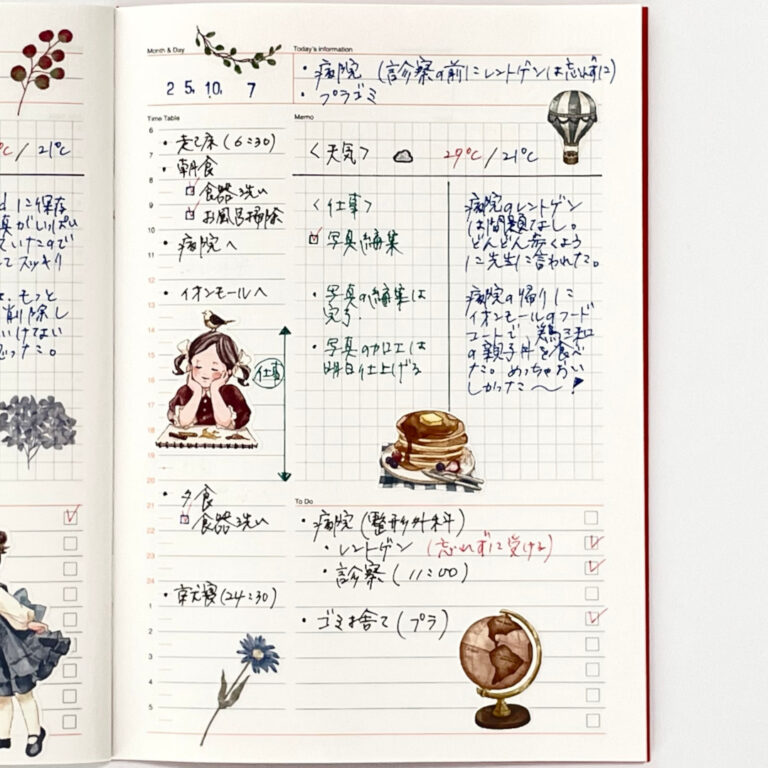 ℃ / 21℃
に保存
真がいっぱい
いたので
てスッキリ
もっと
削除し
いけない
思った。
Month & Day
25. 10. 7
Today's Information
・病院 (診察の前にレントゲンは忘れずに)
・プラゴミ
Time Table
6
7
8
9
10
11
12
13
14
15
16
17
18
19
20
21
22
23
24
1
2
3
4
5
・起床 (6:30)
・朝食
食器洗い
お風呂掃除
・病院へ
・イオンモールへ
仕事
・夕食
食器洗い
・就寝 (24:30)
Memo
<天気> 29℃ / 21℃
<仕事>
写真編集
・写真の編集は
完了
・写真の加工は
明日仕上げる
病院のレントゲン
は問題なし。
どんどん歩くよう
に先生に言われた。
病院の帰りに
イオンモールのフード
コートで、鶏三和
の親子丼を食べ
た。めっちゃおい
しかった〜!
To Do
・病院 (整形外科)
・レントゲン (忘れずに受ける)
・診察 (11:00)
・ゴミ捨て (プラ)